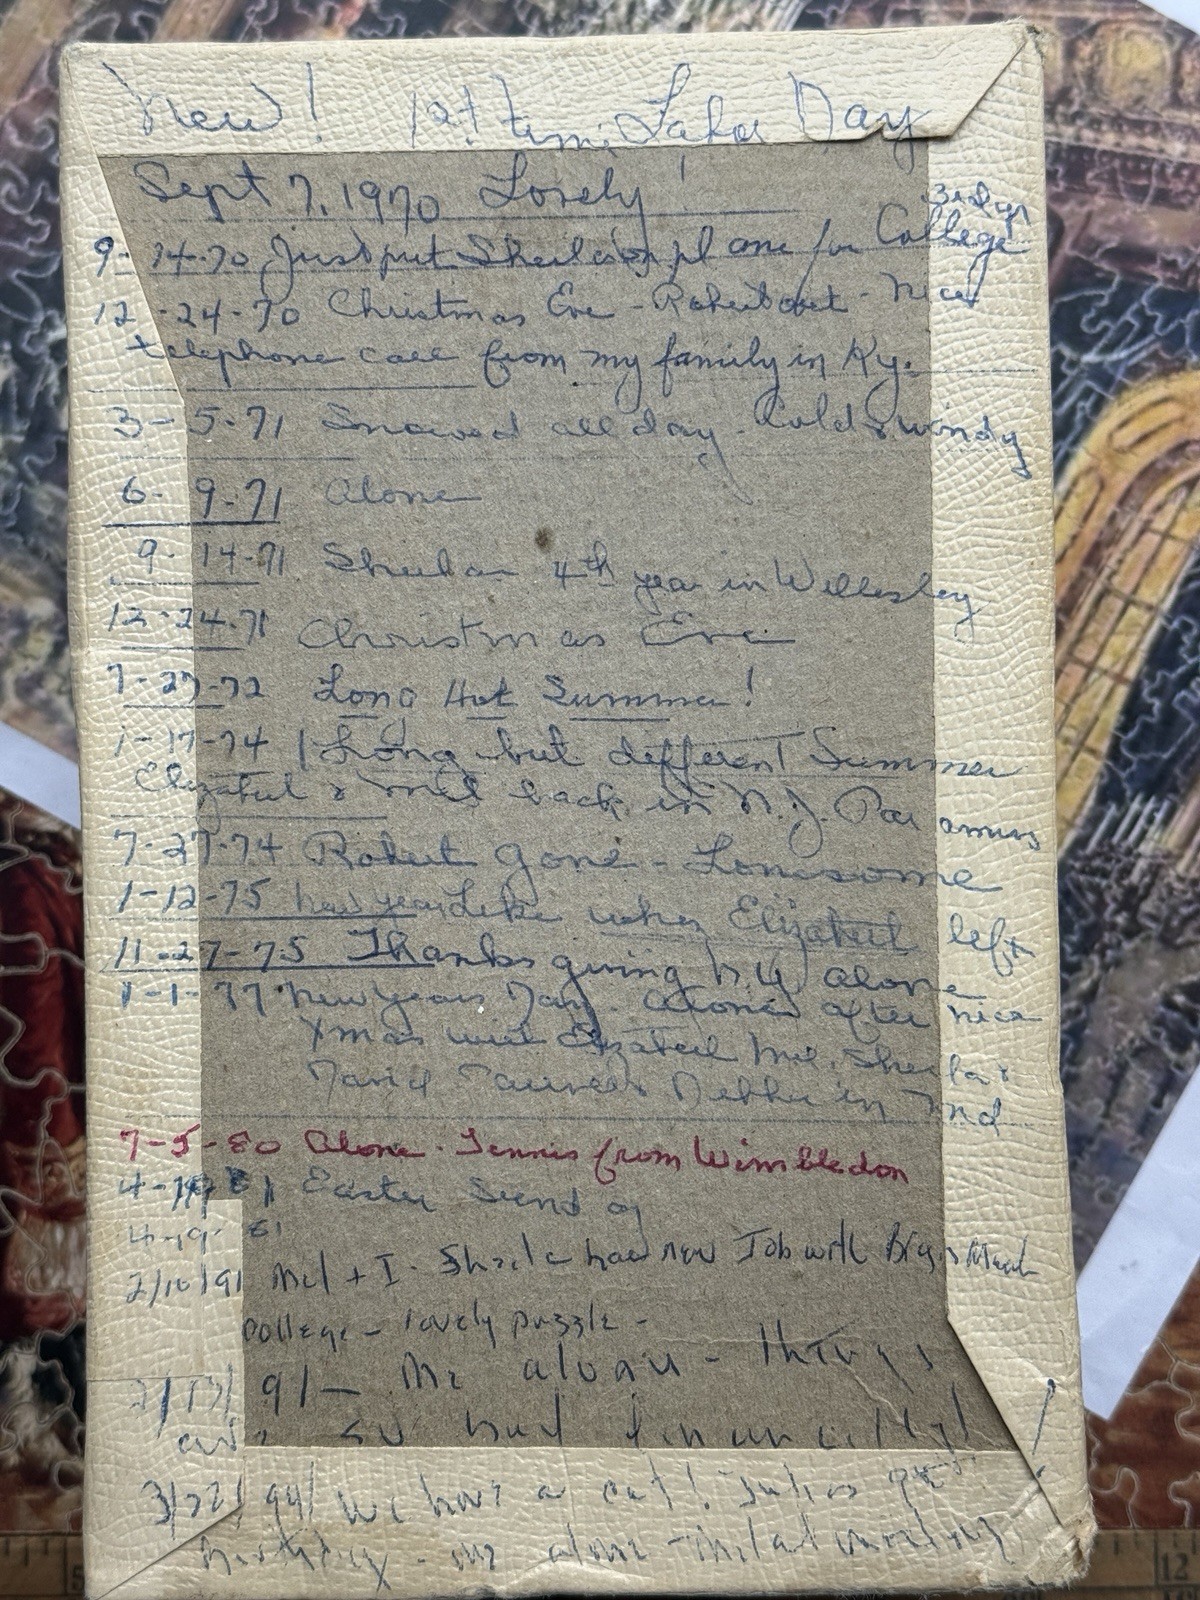 New! 1st time Labor Day
Sept 7, 1970 Lovely!
3rd yr
9-14-70 Just put Sheila on plane for College
12-24-70 Christmas Eve - Robert out - Nice
telephone call from my family in Ky.
3-5-71 Snowed all day - Cold & windy
6-9-71 Alone
9-14-71 Sheila on 4th year in Wellesley
12-24-71 Christmas Eve
7-27-72 Long Hot Summer!
1-17-74 Long but different Summer
Elizabeth & Mel back in N.J. Paramus
7-27-74 Robert gone - Lonesome
1-12-75 New year Like when Elizabeth left
11-27-75 Thanksgiving alone
1-1-77 New Years Day. Alone after nice
Xmas with Elizabeth Mel, Sheila &
David Debbie in Md
7-5-80 Alone - Tennis from Wimbledon
4-19-81 Easter Sunday
4-19-81
2/10/91 Mel + I. Sheila has new Job with
College - lovely puzzle -
2/17/91 - Me alone - things
are so bad financially!
3/22/94 we have a cat! Julius
birthday - me alone - Mel at working